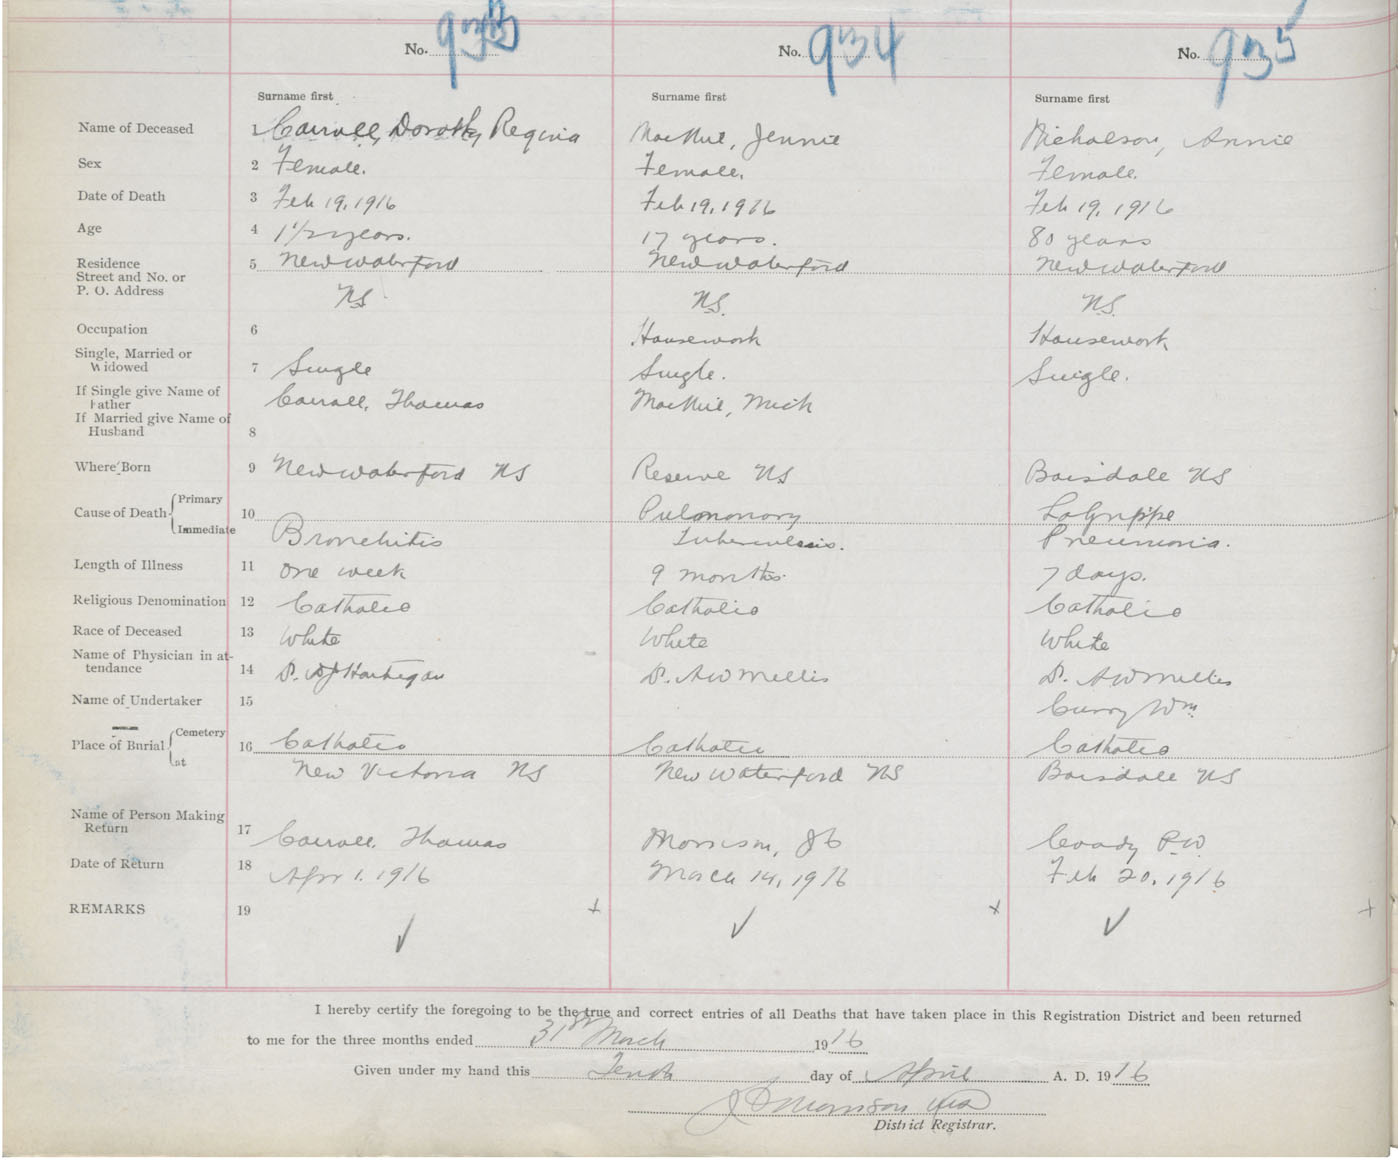 No. 933 No. 934 No. 935
Surname first Surname first Surname first
Name of Deceased 1 Carroll, Dorothy Regina MacNeil, Jennie Nicholson, Annie
Sex 2 Female. Female. Female.
Date of Death 3 Feb 19, 1916 Feb 19, 1916 Feb 19, 1916
Age 4 1 1/2 years. 17 years. 80 years
Residence 5 New Waterford New Waterford New Waterford
Street and No. or
P. O. Address NS NS. NS.
Occupation 6 Housework Housework
Single, Married or
Widowed 7 Single Single. Single.
If Single give Name of
Father Carroll, Thomas MacNeil, Mick
If Married give Name of
Husband 8
Where Born 9 New Waterford NS Reserve NS Boisdale NS
Cause of Death Primary 10 Pulmonary LaGrippe
Immediate Bronchitis Tuberculosis. Pneumonia.
Length of Illness 11 One week 9 months. 7 days.
Religious Denomination 12 Catholic Catholic Catholic
Race of Deceased 13 White White White
Name of Physician in at-
tendance 14 D. Hartigan D. AW Mellis D. AW Mellis
Name of Undertaker 15 Curry Wm.
Place of Burial Cemetery 16 Catholic Catholic Catholic
at New Victoria NS New Waterford NS Boisdale NS
Name of Person Making
Return 17 Carroll, Thomas Morrison, JC Coady P.W.
Date of Return 18 Apr 1. 1916 March 14, 1916 Feb 20, 1916
REMARKS 19 ✓ + ✓ x ✓ +
I hereby certify the foregoing to be the true and correct entries of all Deaths that have taken place in this Registration District and been returned
to me for the three months ended 31st March 1916
Given under my hand this Tenth day of April A. D. 1916
Morrison
District Registrar.